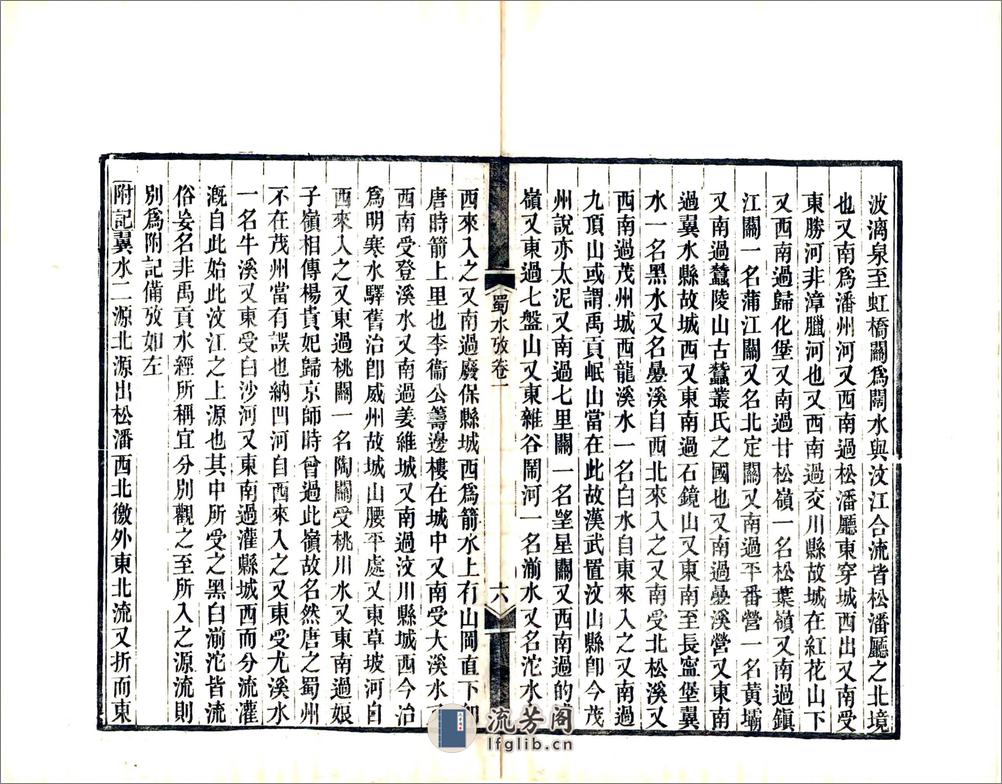 波漓泉至虹橋關爲闊水與汶江合流皆松潘廳之北境
也又南爲潘州河又西南過松潘廳東穿城西出又南受
東勝河非漳臘河也又西南過交川縣故城在紅花山下
又西南過歸化堡又南過甘松嶺一名松葉嶺又南過鎮
江關一名蒲江關又名北定關又南過平番營一名黃壩
又南過蠶陵山古蠶叢氏之國也又南過疊溪營又東南
過翼水縣故城西又東南過石鏡山又東南至長寧堡翼
水一名黑水又名疊溪自西北來入之又南受北松溪又
西南過茂州城西龍溪水一名白水自東來入之又南過
九頂山或謂禹貢岷山當在此故漢武置汶山縣卽今茂
州說亦太泥又南過七里關一名望星關又西南過的
嶺又東過七盤山又東雜谷鬧河一名湔水又名沱水
西來入之又南過廢保縣城西爲箭水上有山岡直下如
唐時箭上里也李衞公籌邊樓在城中又南受大溪水
西南受登溪水又南過姜維城又南過汶川縣城西今治
爲明寒水驛舊治卽威州故城山腰平處又東草坡河自
西來入之又東過桃關一名陶關受桃川水又東南過娘
子嶺相傳楊貴妃歸京師時曾過此嶺故名然唐之蜀州
不在茂州當有誤也納凹河自西來入之又東受尤溪水
一名牛溪又東受白沙河又東南過灌縣城西而分流灌
溉自此始此汶江之上源也其中所受之黑白湔沱皆流
俗妄名非禹貢水經所稱宜分別觀之至所入之源流則
別爲附記備攷如左
附記翼水二源北源出松潘西北徼外東北流又折而東
蜀水攷卷一
六
流芳阁
lfglib.cn